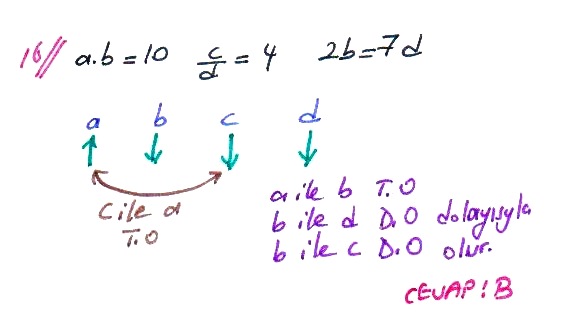 16// a.b = 10 c/d = 4 2b = 7d
a b c d
c ile a
T.O
a ile b T.O
b ile d D.O dolayısıyla
b ile c D.O olur.
CEVAP! B